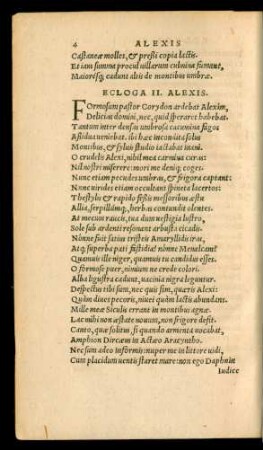 4 ALEXIS
Castaneæ molles, & pressi copia lactis.
Et iam summa procul uillarum culmina fumant,
Maioresq; cadunt altis de montibus umbræ.
ECLOGA II. ALEXIS.
Formosum pastor Corydon ardebat Alexim,
Delicias domini, nec, quid speraret habebat.
Tantum inter densas umbrosa cacumina fagos
Assidue ueniebat. ibi hæc incondita solus
Montibus, & syluis studio iactabat inani.
O crudelis Alexi, nihil mea carmina curas:
Nil nostri miserere: mori me deniq; coges.
Nunc etiam pecudes umbras, & frigora captant:
Nunc uirides etiam occultant spineta lacertos:
Thestylis & rapido fessis messoribus æstu
Allia, serpillumq; herbas contundit olentes.
At mecum raucis, tua dum uestigia lustro,
Sole sub ardenti resonant arbusta cicadis.
Nonne fuit satius tristeis Amaryllidis iras,
Atq; superba pati fastidia? nonne Menalcam?
Quamuis ille niger, quamuis tu candidus esses.
O formose puer, nimium ne crede colori.
Alba ligustra cadunt, uacinia nigra leguntur.
Despectus tibi sum, nec quis sim, quæris Alexi:
Quàm diues pecoris, niuei quàm lactis abundans.
Mille meæ Siculis errant in montibus agnæ.
Lac mihi non æstate nouum, non frigore desit.
Canto, quæ solitus, si quando armenta uocabat,
Amphion Dircæus in Actæo Aracyntho.
Nec sum adeo informis: nuper me in littore uidi,
Cum placidum uentis staret mare: non ego Daphnin
Iudice